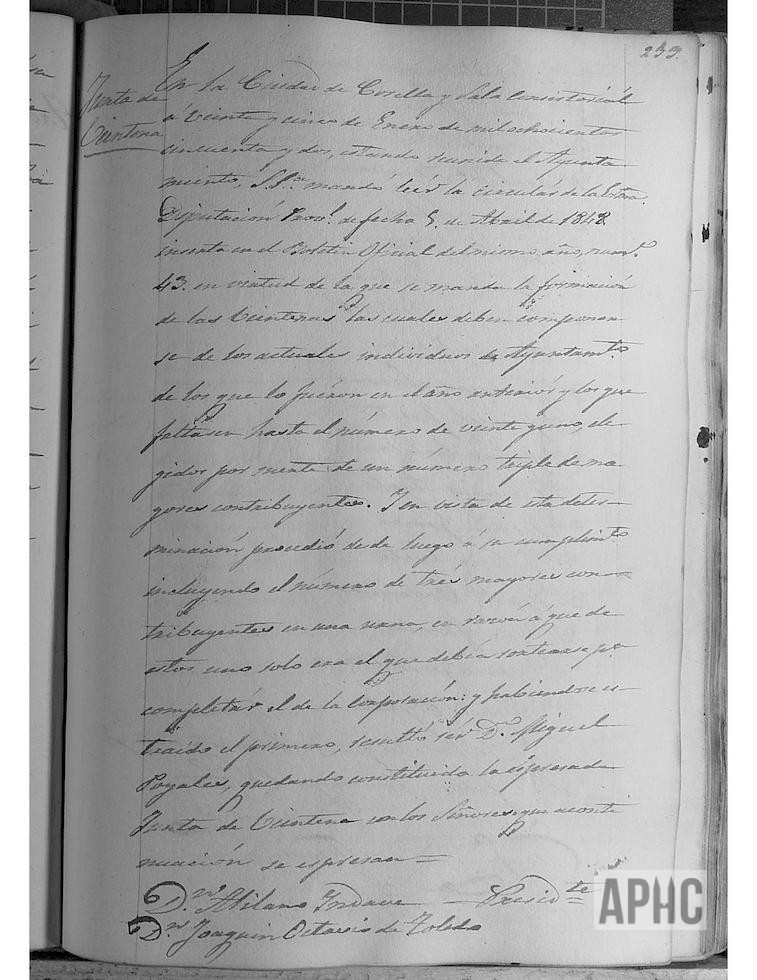 233.
Junta de
Veintena
En la Ciudad de Corella y Sala Consistorial
á Veinte y cinco de Enero de mil ochocientos
cincuenta y dos, estando reunido el Ayunta
miento, S.Sª mandó leér la circular de la Exma.
Diputación Provl. de fecha 5. de Abril de 1848.
inserta en el Boletin Oficial del mismo año, numº.
43. en virtud de la que se manda la formación
de las Veintenas las cuales deben componer
se de los actuales individuos de Ayuntamto.
de los que lo fuéron en el año anteriór y los que
faltasen hasta el número de veinte y uno, ele
gidos por suerte de un número triple de ma
yores contribuyentes. Y en vista de esta deter-
minación procedió desde luego á su cumplimto.
incluyendo el número de trés mayores con-
tribuyentes en una urna, en razón á que de
estos uno solo era el que debia sortearse pª.
completár el de la Corporación: y habiendose es-
traido el primero, resultó sér D. Miguel
Poyales, quedando constituida la espresada
Junta de Veintena con los Señores que á conti
nuación se espresan —
Dn. Atilano Yndave — Presidte.
Dn. Joaquin Octavio de Toledo
APHC